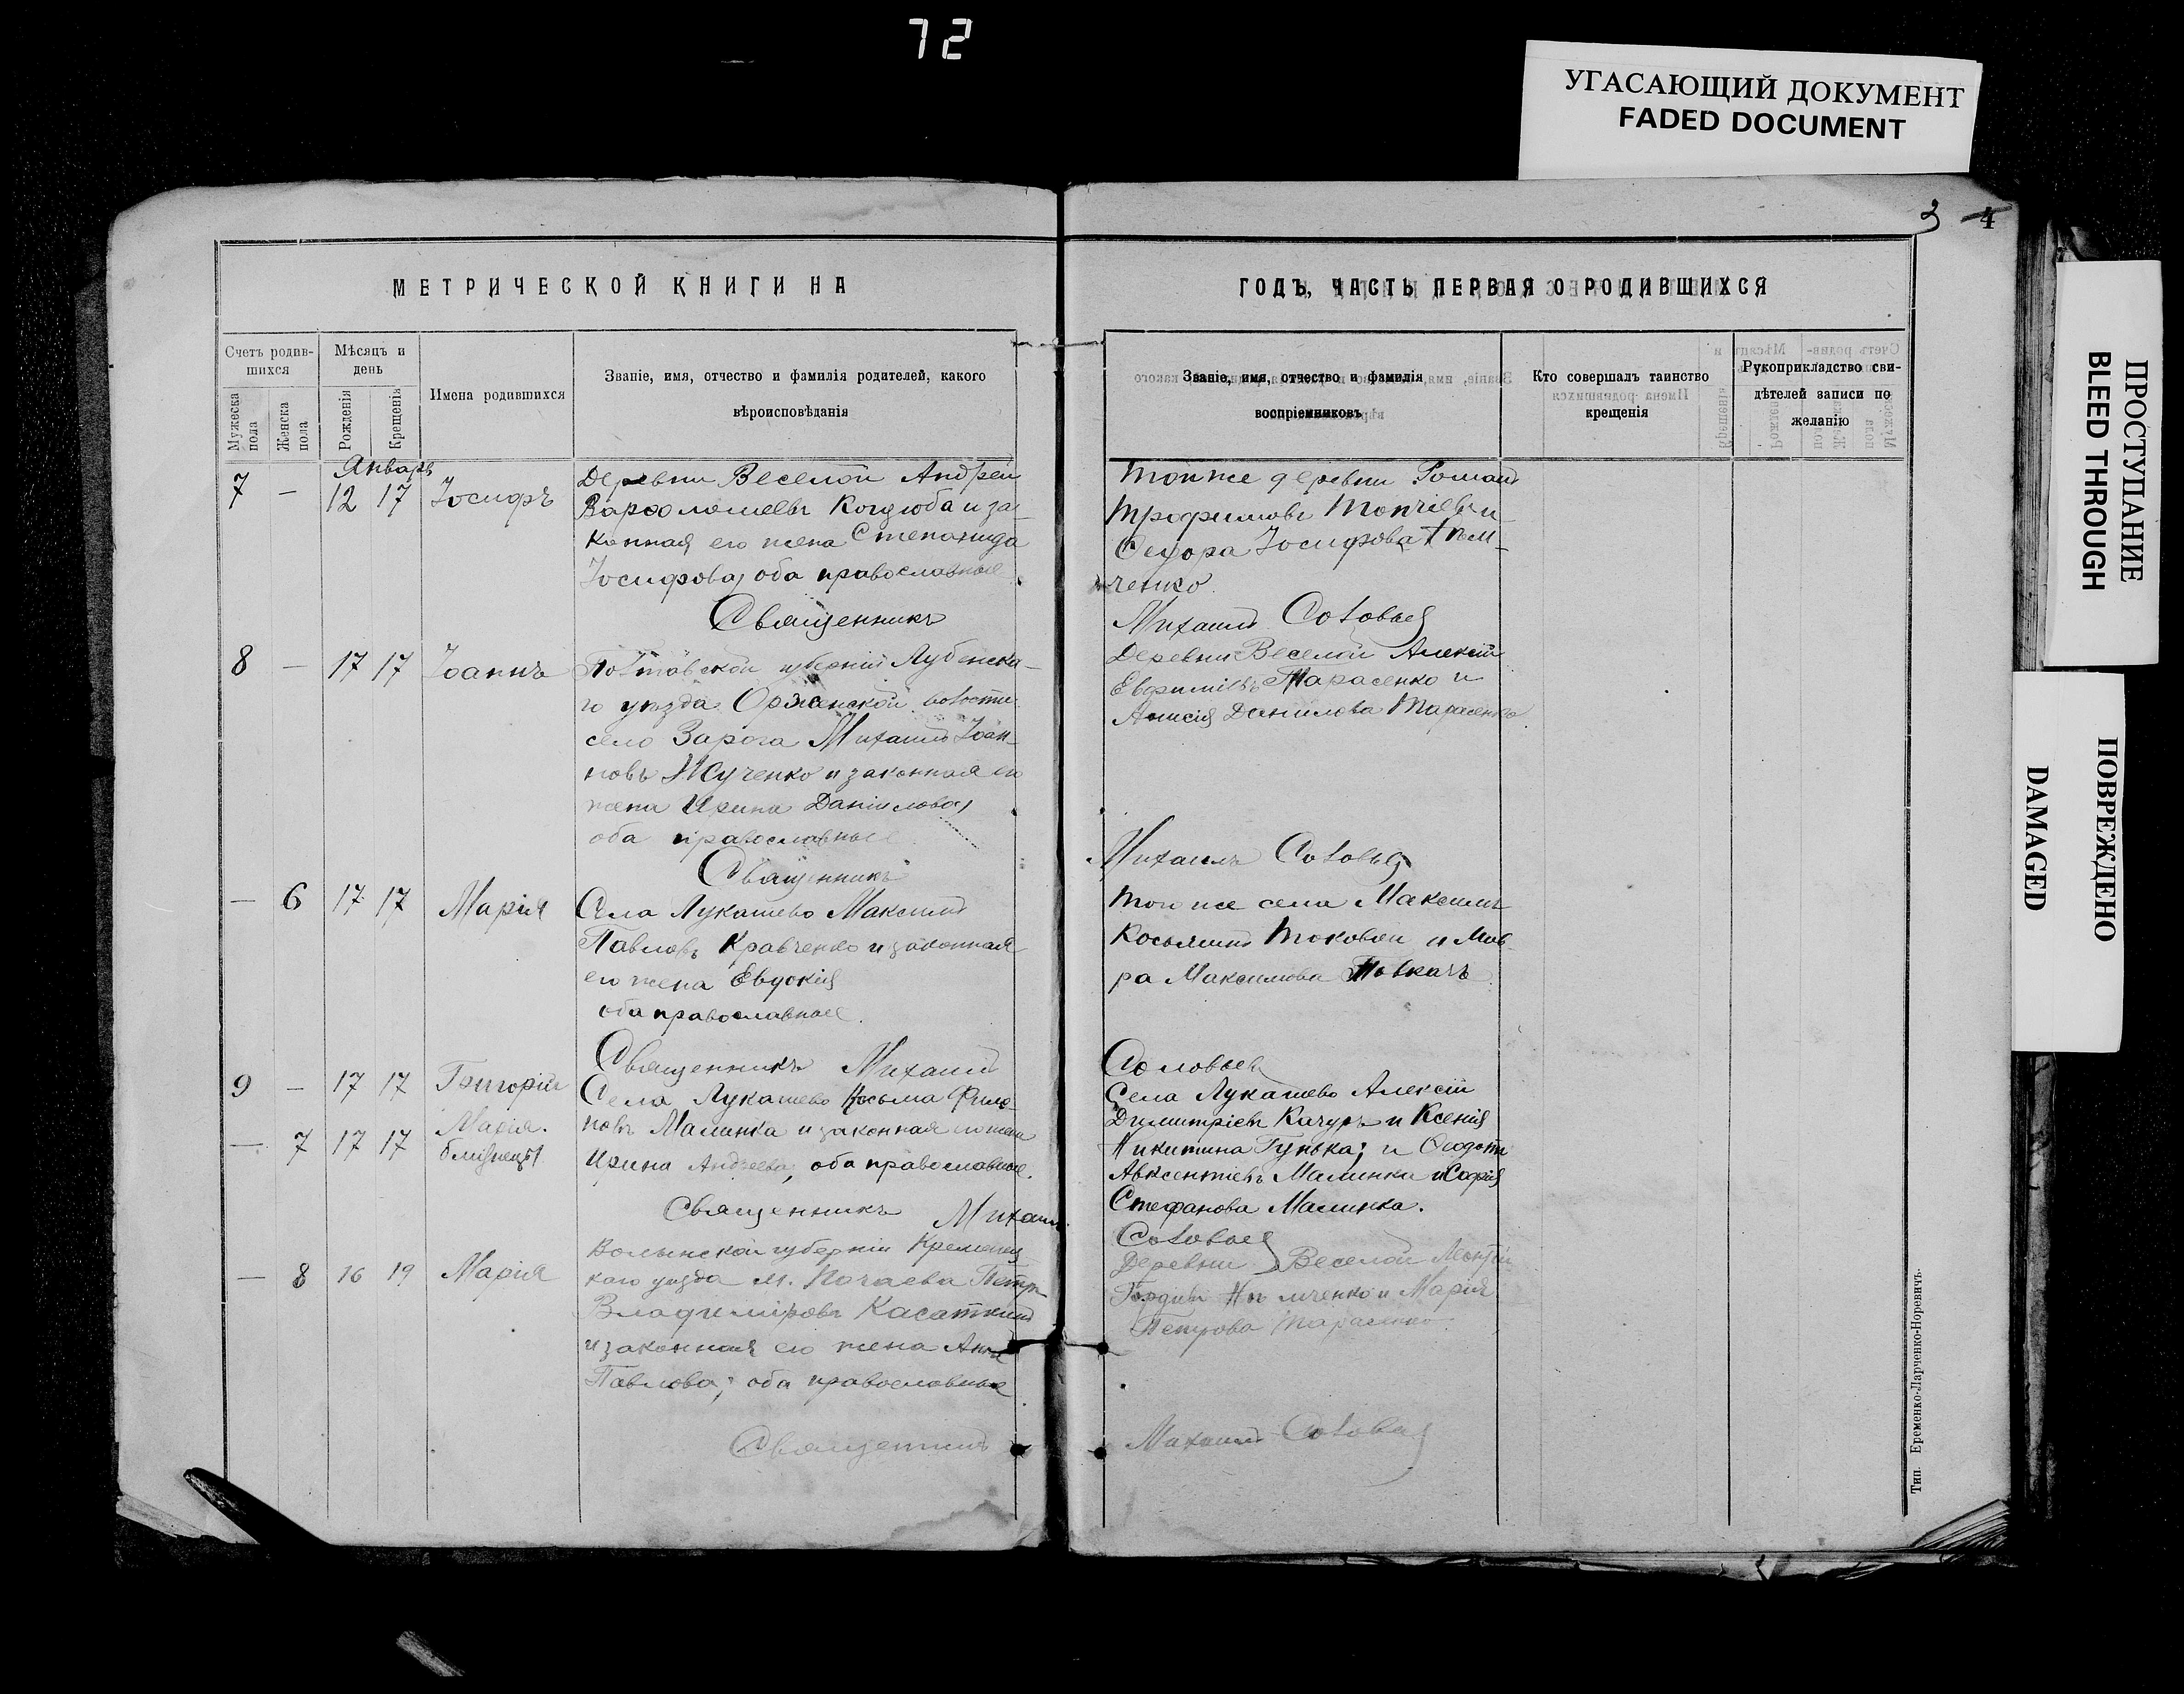 72
УГАСАЮЩИЙ ДОКУМЕНТ
FADED DOCUMENT
3 4
МЕТРИЧЕСКОЙ КНИГИ НА
Счетъ родив-
шихся
Мѣсяцъ и
день
Мужеска
пола
Женска
пола
Рожденія
Крещенія
Имена родившихся
Званіе, имя, отчество и фамилія родителей, какого
вѣроисповѣданія
Январь
7 - 12 17 Іосифъ
Деревни Веселой Андрей
Варфоломеевъ Коцюба и за-
конная его жена Степанида
Іосифова, оба православные
Священникъ
8 - 17 17 Іоаннъ
Полтавской губерніи Лубенска-
го уезда Оржанской волости
село Зарога Михаилъ Іоан-
новъ и законная его
жена Ирина Даніилова,
оба православные
Священникъ
- 6 17 17 Марія
Села Лукашево Максимъ
Павловъ Кравченко и законная
его жена Евдокія
оба православные.
Священникъ Михаилъ
9 - 17 17 Григорій
Села Лукашево Косьма Фили-
- 7 17 17 Марія.
близнецы
повъ Малинка и законная его жена
Ирина Андреева, оба православные.
Священникъ Михаилъ
- 8 16 19 Марія
Волынской губерніи Кременец
каго уезда м. Почаева Петръ
Владиміровъ Касаткинъ
и законная его жена Анна
Павлова; оба православные
Священникъ
ГОДЪ, ЧАСТЬ ПЕРВАЯ О РОДИВШИХСЯ
Званіе, имя, отчество и фамилія
воспріемниковъ
Кто совершалъ таинство
крещенія
Рукоприкладство сви-
дѣтелей записи по
желанію
Той же деревни Романъ
Трофимовъ и
Іосифова
ченко.
Михаилъ Соловьев
Деревни Веселой Алексій
Евфиміевъ Тарасенко и
Анисія Данилова Тарасенко
Михаилъ Соловьев
Того же села Максимъ
Косьминъ и Мав-
ра Максимова
Соловьев
Села Лукашево Алексій
Димитріевъ Качуръ и Ксенія
Никитина Гунька; и Ѳеодотъ
Авксентіевъ Малинка и Софія
Стефанова Малинка.
Соловьев
Деревни Веселой
и Марія
Петрова Тарасенко.
Михаилъ Соловьев
Тип. Еременко-Ларченко-Норевичъ.
ПРОСТУПАНИЕ
BLEED THROUGH
ПОВРЕЖДЕНО
DAMAGED